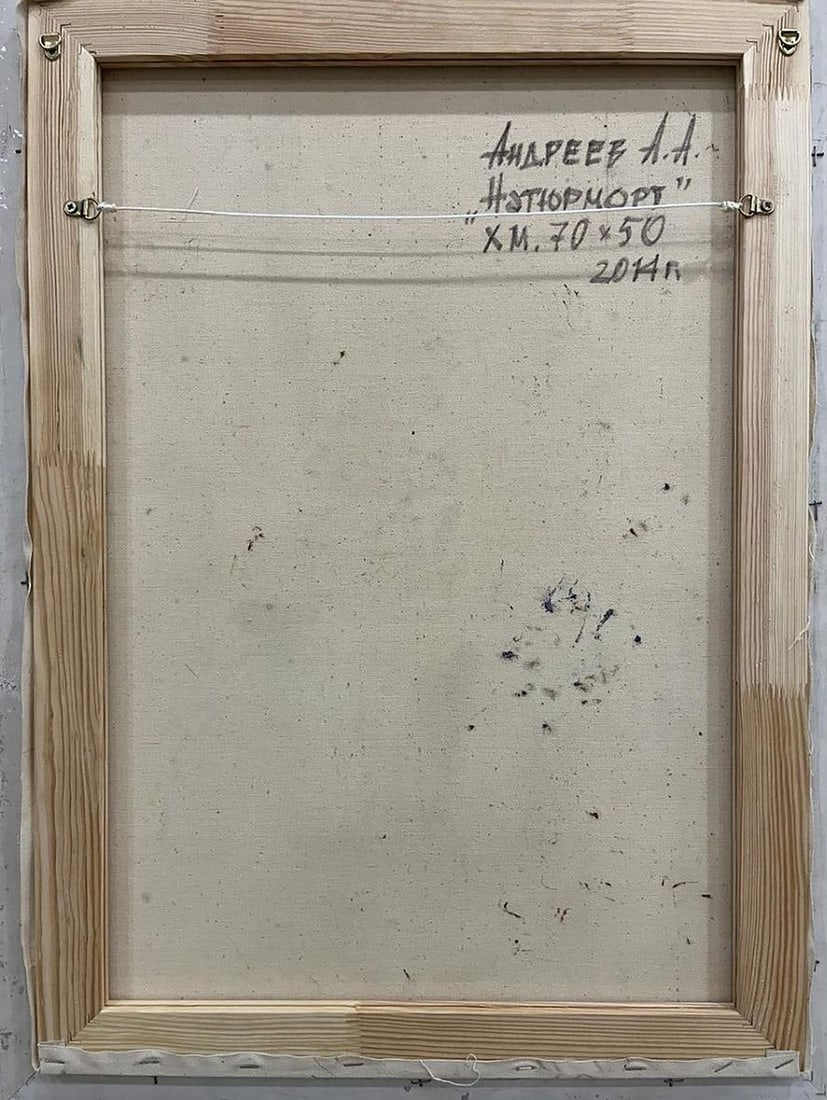 Андреев А.А.
"Натюрморт"
Х М. 70 × 50
2014 г.